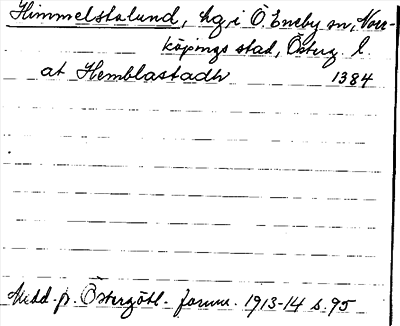 Himmelstalund, hg i Ö. Eneby sn, Norr-
köpings stad, Österg. l.
at Hemblastadh 1384
Medd. fr. Östergötl. fornm. 1913-14 s. 95